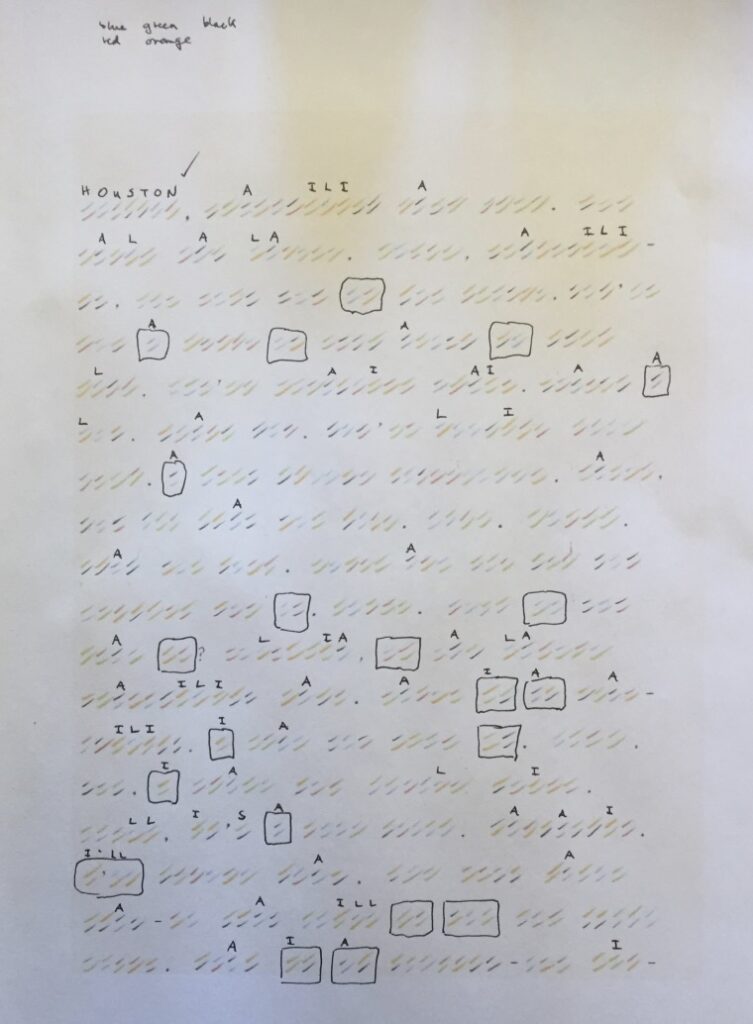 blue green black
red orange
HOUSTON A ILI A
A L A L A A ILI -
A A
L A I A I A A
L A L I
A A
A
A A
A ? L I A A L A
A ILI A A I A A -
ILI I A
I A L I
LL I 'S A A A I
I'LL A A
A - A ILL
A I A - I -